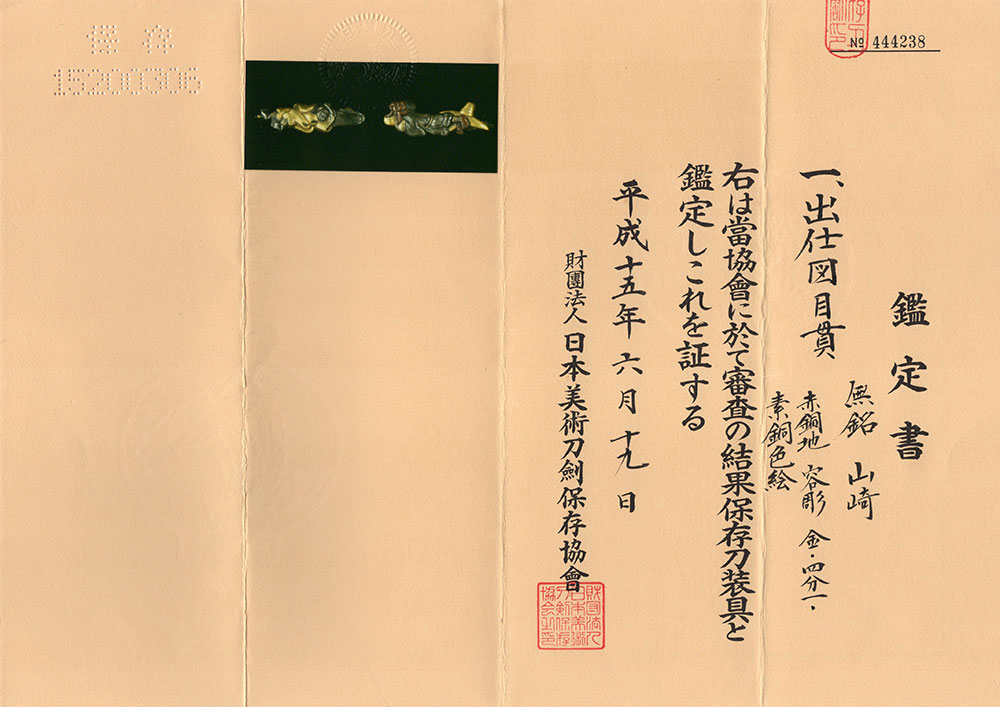 № 444238
鑑定書
無銘 山崎
一、出仕図目貫
赤銅地 容彫 金・四分一・
素銅色絵
右は當協會に於て審査の結果保存刀装具と
鑑定しこれを証する
平成十五年六月十九日
財團法人日本美術刀劍保存協會
財団法人
日本美術
刀剣保存
協会之印
保存
15200306